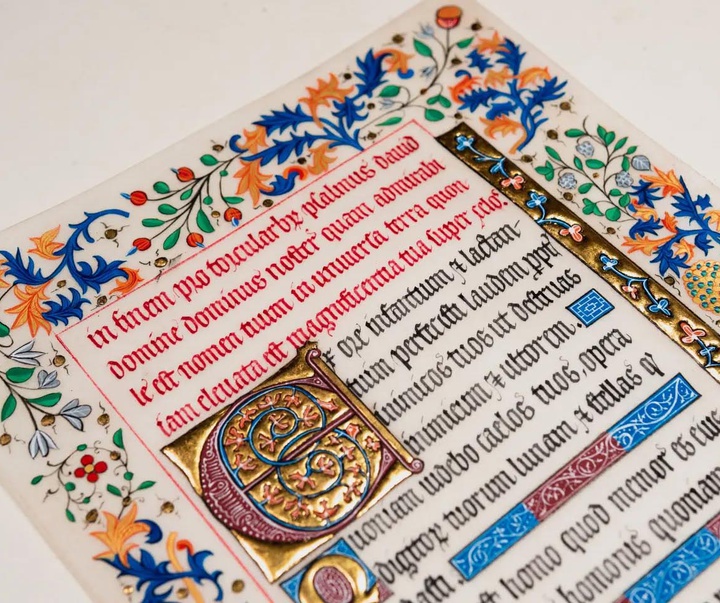 in finem pro torcularibꝫ psalmus dauid
domine dominus noster quam admirabi
le est nomen tuum in uniuersa terra quon
iam eleuata est magnificentia tua super celos
Ex ore infantium ⁊ lactan-
tium perfecisti laudem ppt
inimicos tuos ut destruas
inimicum ⁊ ultorem.
Quoniam uidebo caelos tuos, opera
digitoꝝ tuorum lunam, ⁊ stellas q
dasti.
st homo quod memor es eius
hominis quoniam